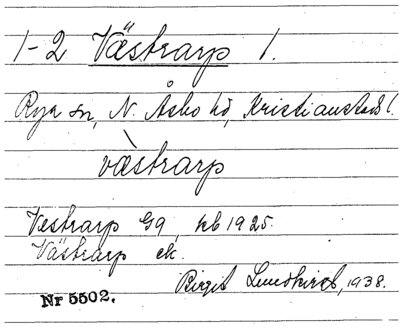 1-2 Västrarp 1.
Rya sn, N. Åsbo hd, Kristianstads l.
vàstrarp
Vestrarp G9 kb 1925.
Västrarp ek.
Birgit Lundkvist, 1938.
Nr 5502.